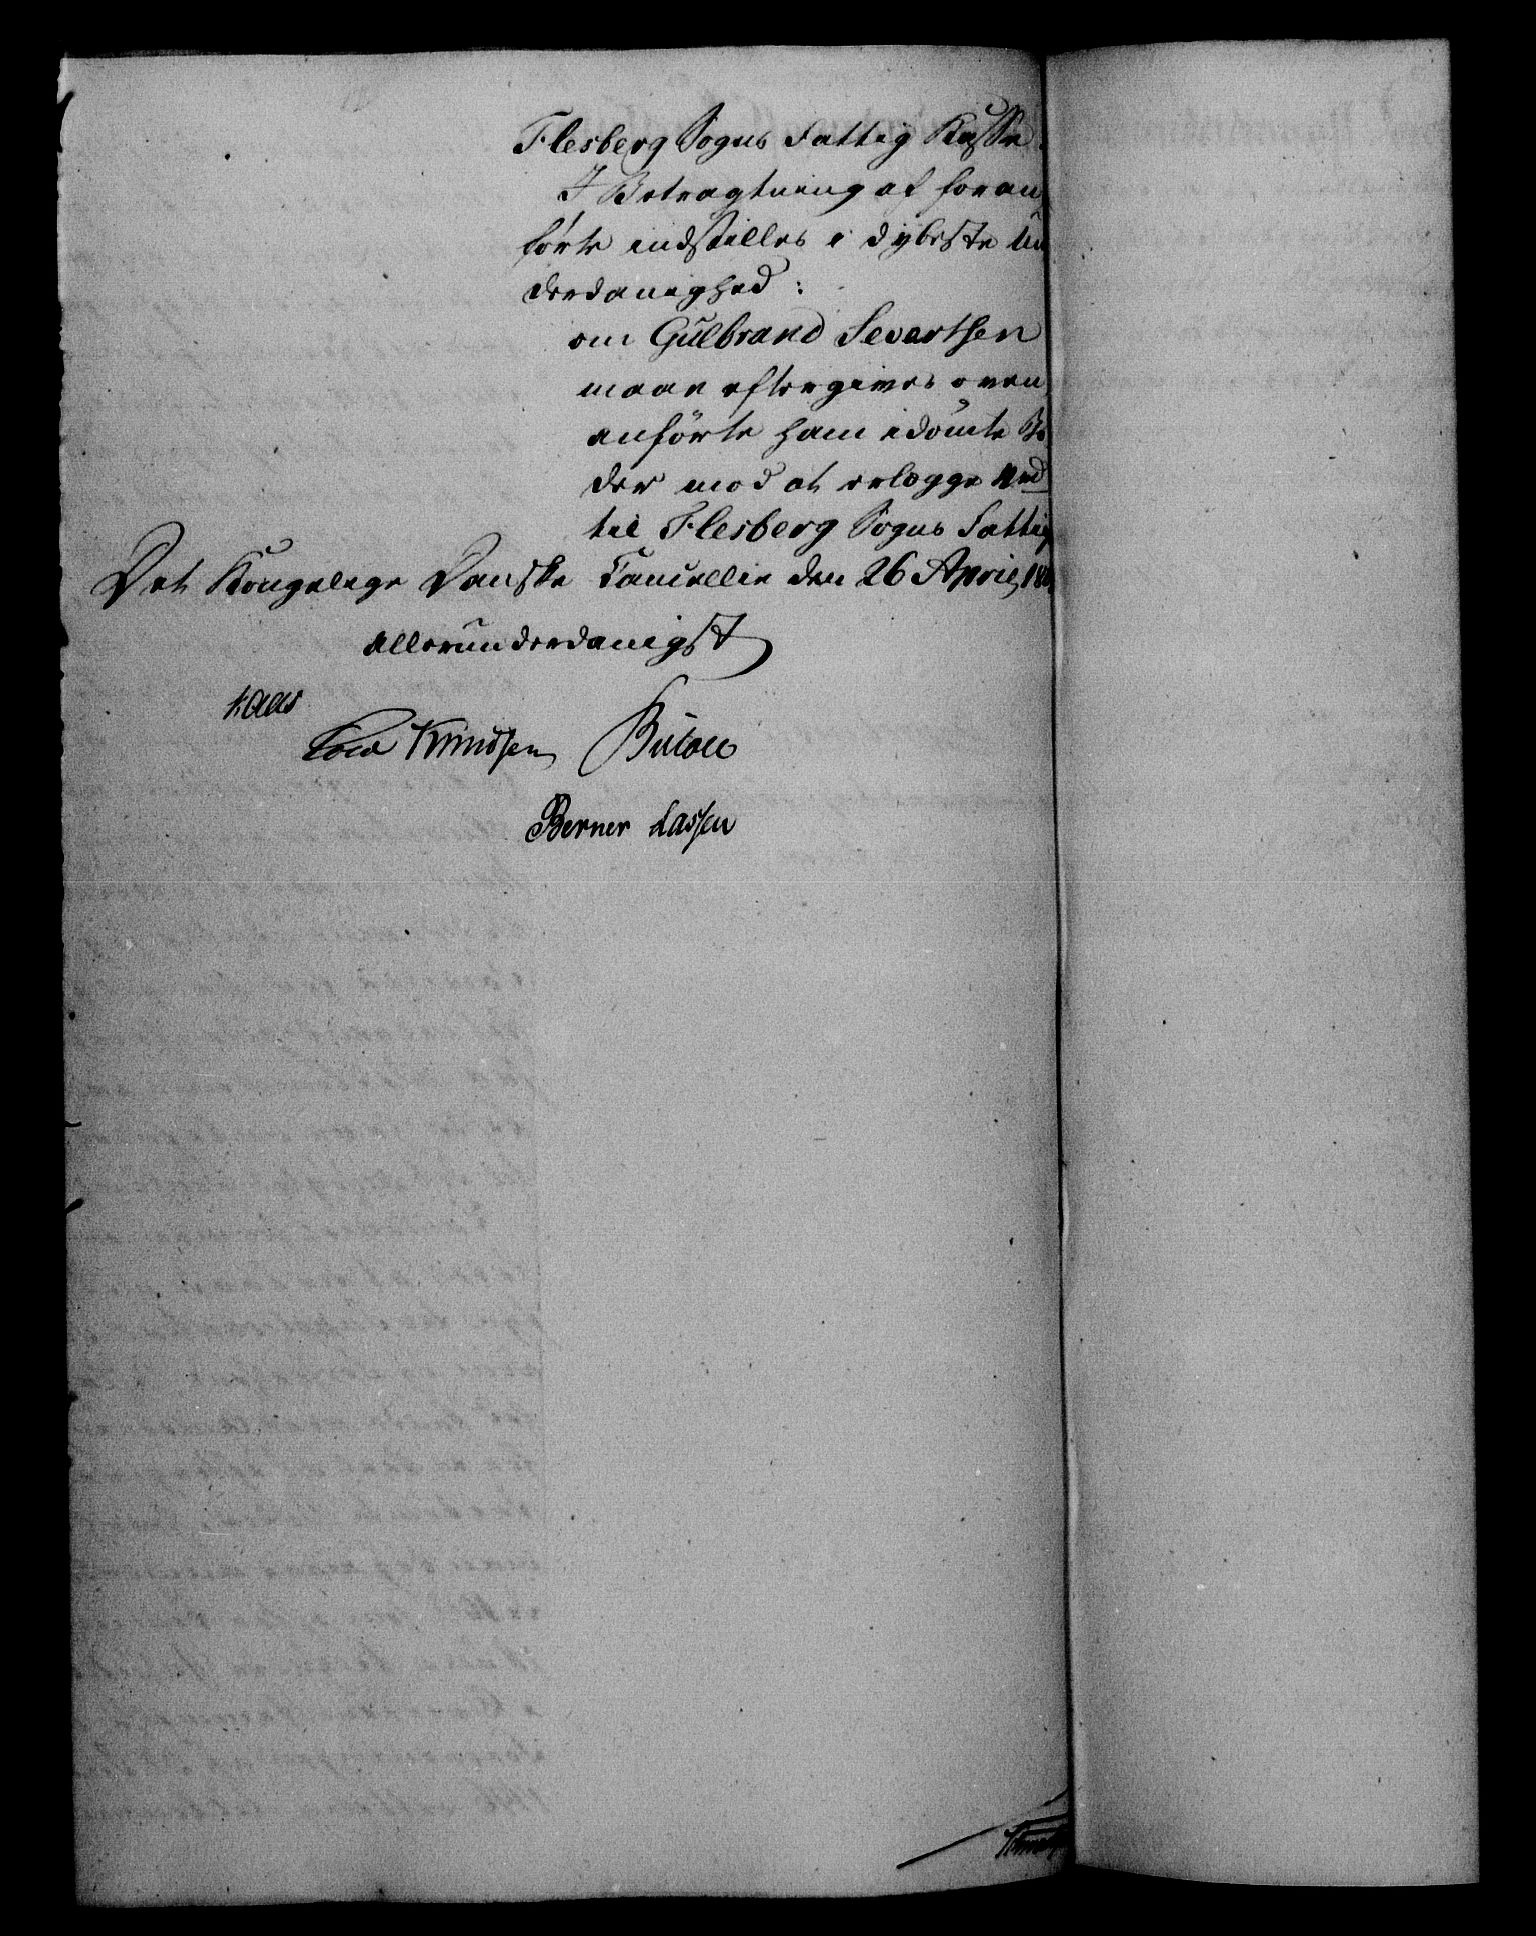 Flesberg Sogns Fattig Kasse.
I Betragtning af foran
førte indstilles i dybeste Un
derdanighed:
om Gulbrand Sevartsen
maae eftergives oven
anførte ham idömte Bö
der mod at erlægge 4rd
til Flesberg Sogns Fattig
Det Kongelige Danske Cancellie den 26 April, 18
allerunderdanigst
Kaas
Cold Knudsen Bülow
Berner Lassen